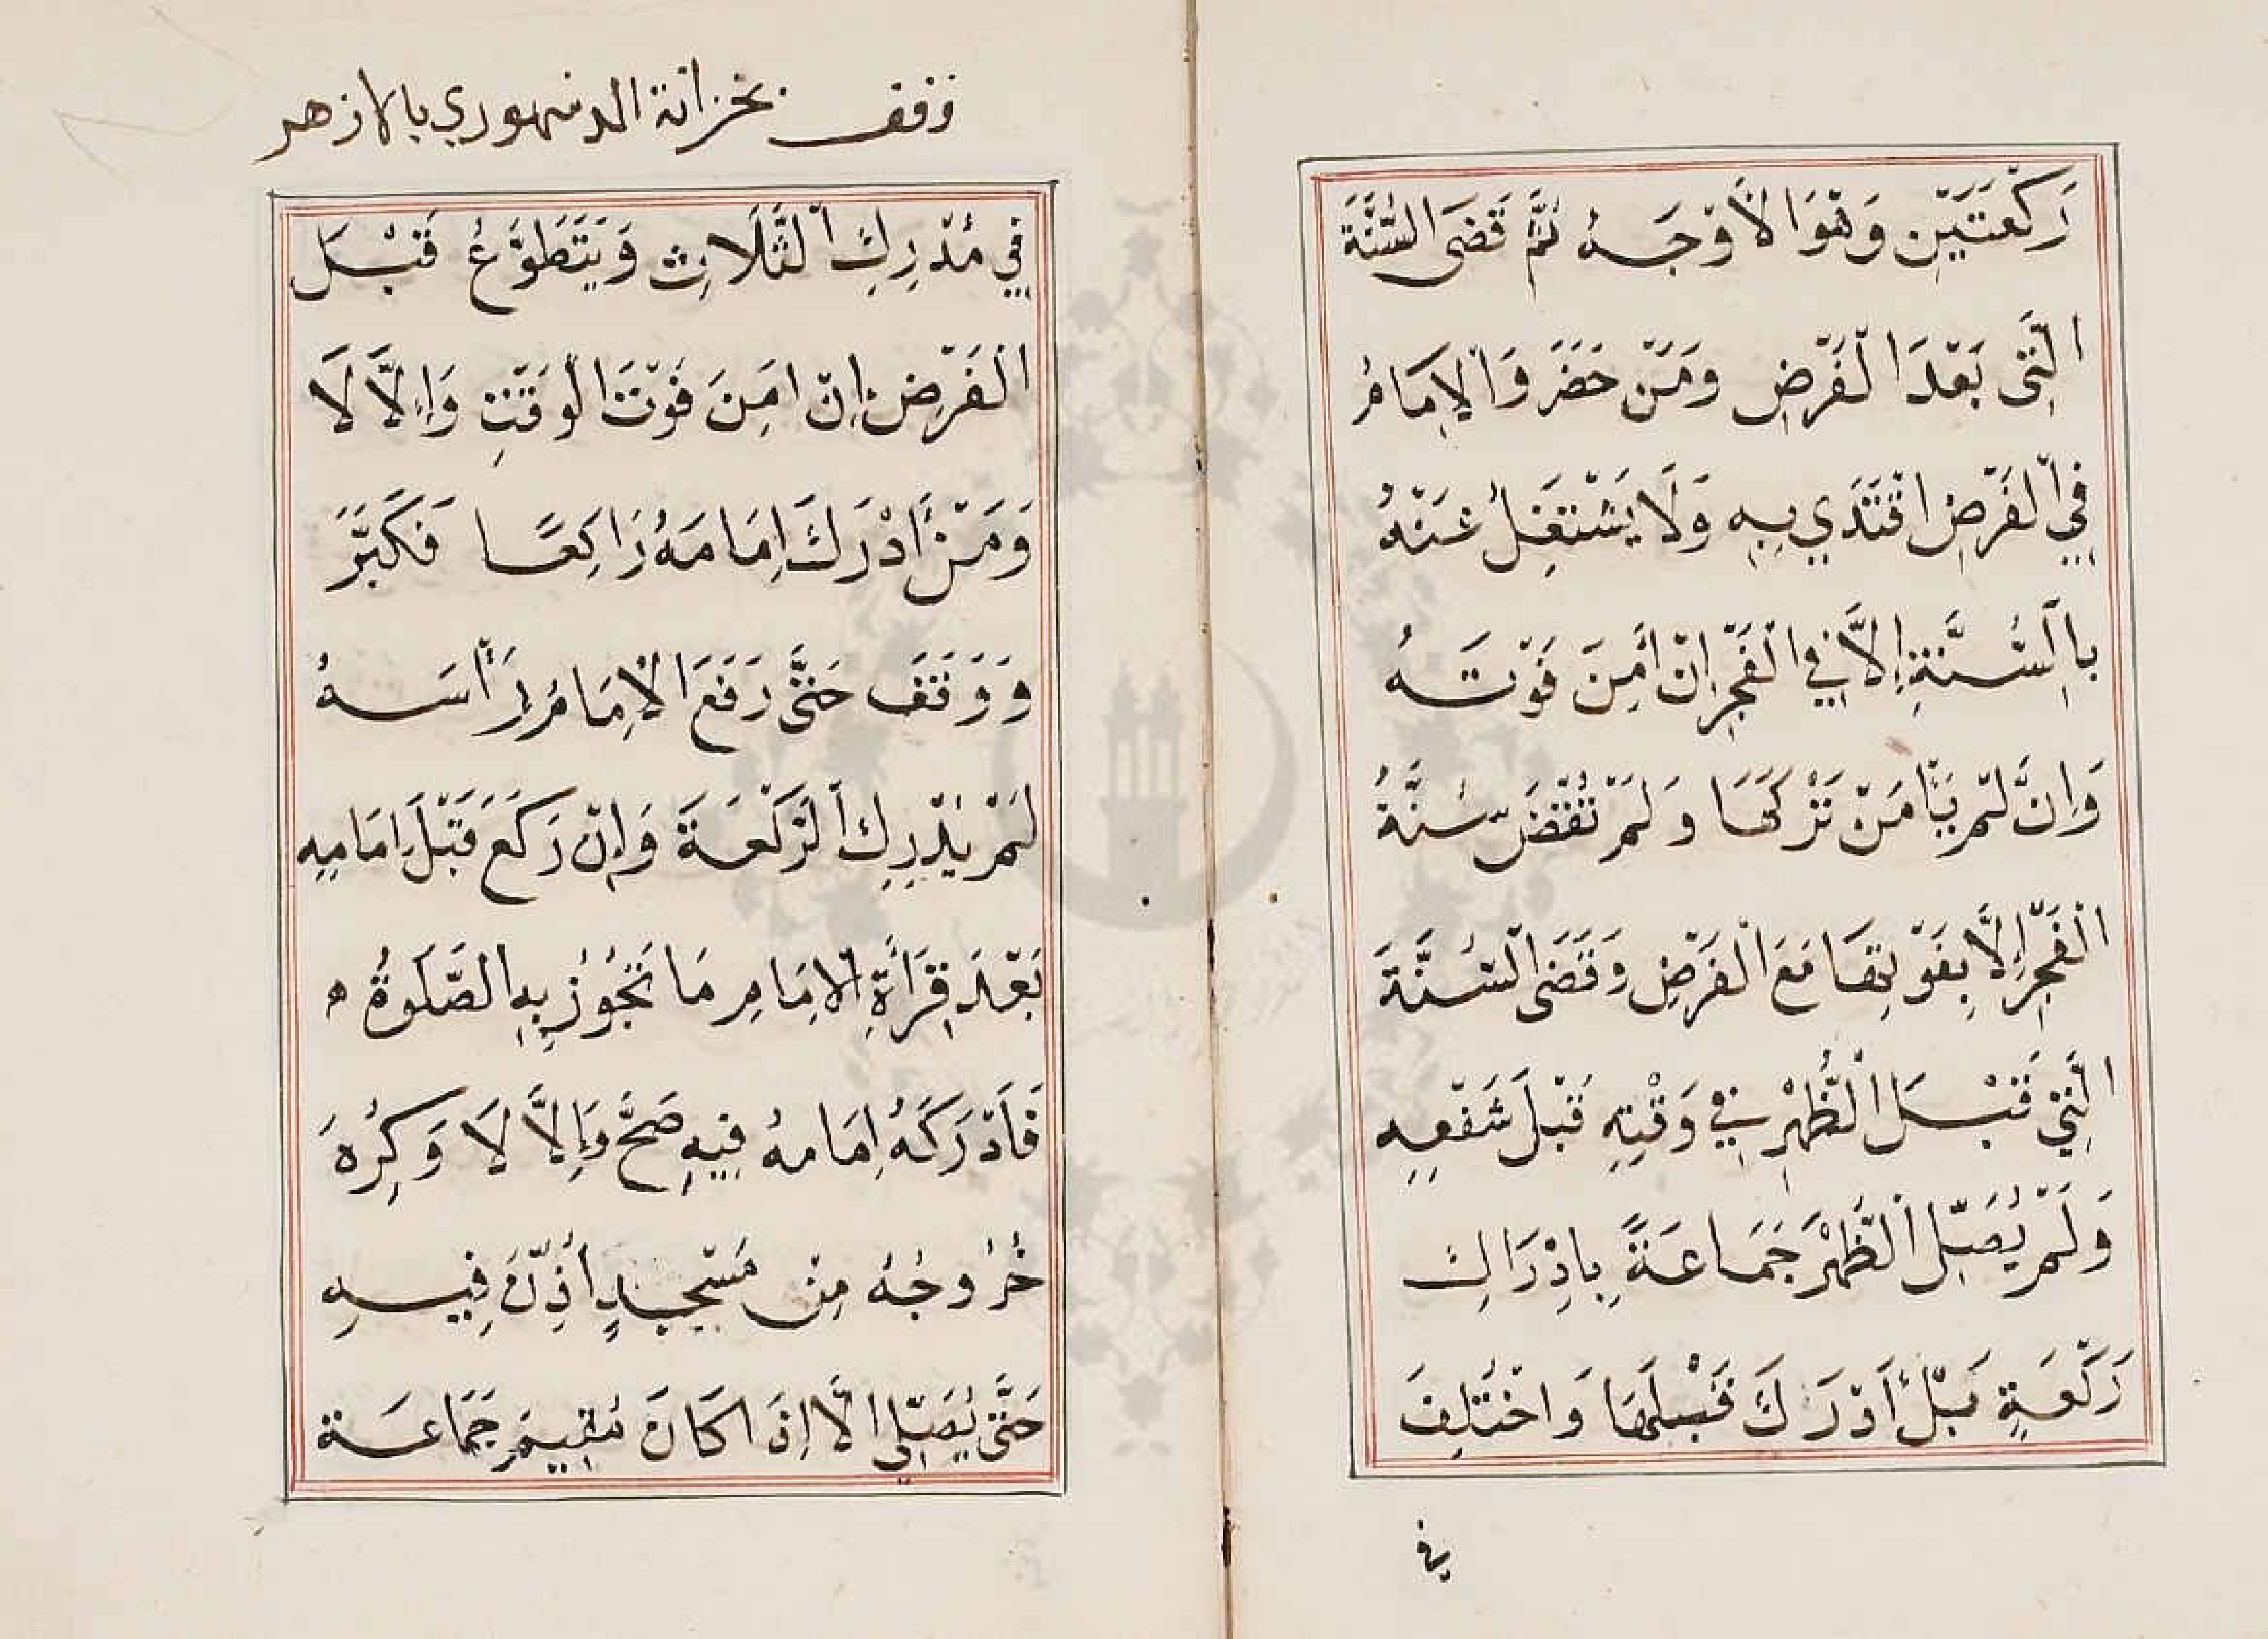 رَكْعَتَيْنِ وَهُوَ الْأَوْجَهُ ثُمَّ قَضَى السُّنَّةَ
الَّتِى بَعْدَ الْفَرْضِ وَمَنْ حَضَرَ وَالْإِمَامُ
فِي الْفَرْضِ اقْتَدَي بِهِ وَلَا يَشْتَغِلُ عَنْهُ
بِالسُّنَّةِ إِلَّا فِي الْفَجْرِ إِنْ أَمِنَ فَوْتَهُ
وَإِنْ لَمْ يَأْمَنْ تَرْكَهَا وَلَمْ تُقْضَ سُنَّةُ
الْفَجْرِ إِلَّا بِفَوْتِهَا مَعَ الْفَرْضِ وَقَضَى السُّنَّةَ
الَّتِي قَبْلَ الظُّهْرِ فِي وَقْتِهِ قَبْلَ شَفْعِهِ
وَلَمْ يُصَلِّ الظُّهْرَ جَمَاعَةً بِإِدْرَاكِ
رَكْعَةٍ بَلْ أَدْرَكَ فَضْلَهَا وَاخْتُلِفَ
في
وقف بخزانة الدمنهوري بالازهر
فِي مُدْرِكِ الثَّلَاثِ وَيَتَطَوَّعُ قَبْلَ
الْفَرْضِ إِنْ امِنَ فَوْتَ الْوَقْتِ وَإِلَّا لَا
وَمَنْ أَدْرَكَ إِمَامَهُ رَاكِعًا فَكَبَّرَ
وَوَقَفَ حَتَّى رَفَعَ الْإِمَامُ رَأْسَهُ
لَمْ يُدْرِكِ الرَّكْعَةَ وَإِنْ رَكَعَ قَبْلَ إِمَامِهِ
بَعْدَ قِرَأَةِ الْإِمَامِ مَا تَجُوزُ بِهِ الصَّلَوةُ ه
فَأَدْرَكَهُ إِمَامهُ فِيهِ صَحَّ وَإِلَّا لَا وَكُرِهَ
خُرُوجُهُ مِنْ مَسْجِدٍ أُذِّنَ فِيهِ
حَتَّى يُصَلِّي إِلَّا إِذَا كَانَ مُقِيمَ جَمَاعَة